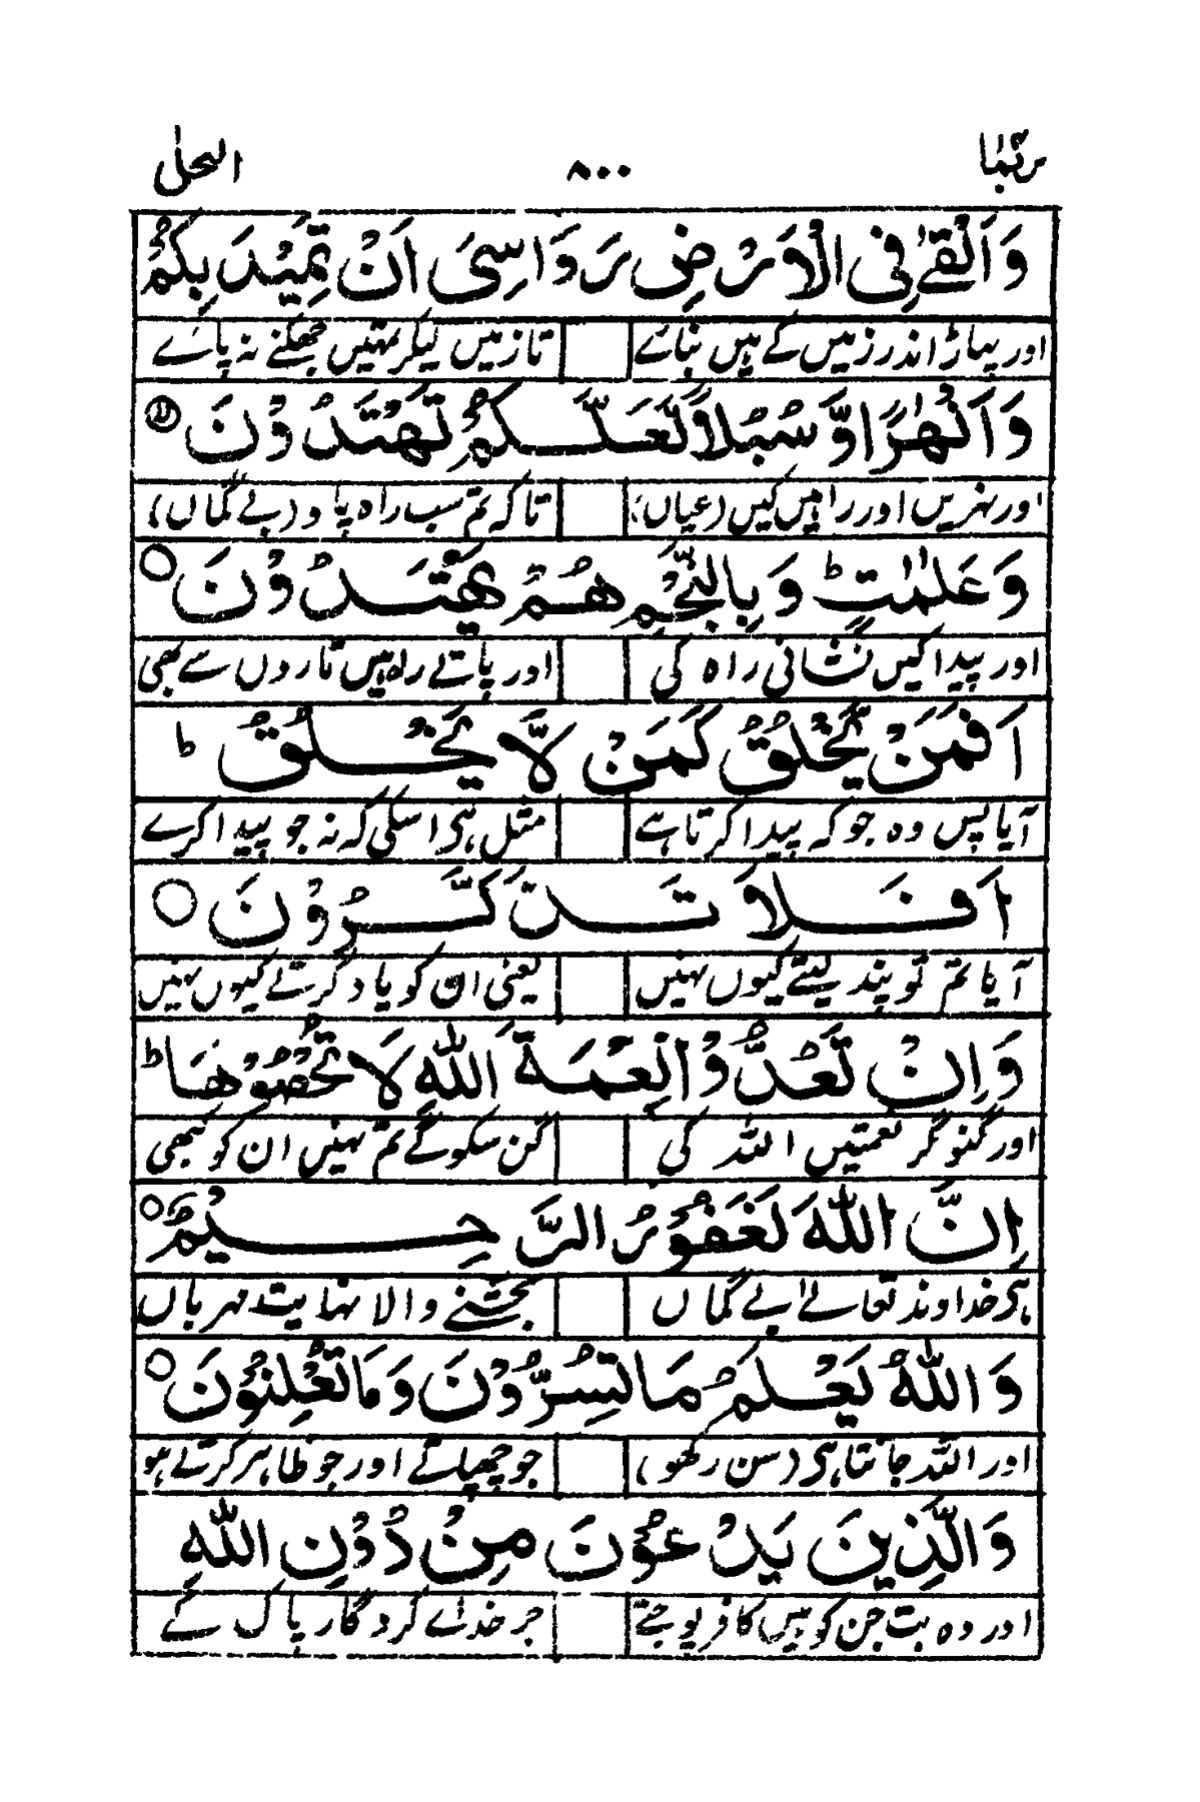 ربما ۸۰۰ النحل
وَاَلْقٰى فِى الْاَرْضِ رَوَاسِىَ اَنْ تَمِيْدَ بِكُمْ
اور پہاڑ اندر زمیں کے ہیں بنائے تا زمیں لیکر تمہیں جھکنے نہ پائے
وَاَنْهٰرًا وَّسُبُلًا لَّعَلَّكُمْ تَهْتَدُوْنَ
اور نہریں اور راہیں کیں (عیاں) تاکہ تم سب راہ پاو (بے گماں)
وَعَلٰمٰتٍ ط وَبِالنَّجْمِ هُمْ يَهْتَدُوْنَ ○
اور پیدا کیں نشانی راہ کی اور پاتے راہ ہیں تاروں سے بھی
اَفَمَنْ يَّخْلُقُ كَمَنْ لَّا يَخْلُقُ ط
آیا پس وہ جو کہ پیدا کرتا ہے مثل ہی اسکی کہ نہ جو پیدا کرے
اَفَلَا تَذَكَّرُوْنَ ○
آیا تم تو پند لیتے کیوں نہیں یعنی ان کو یاد کرتے کیوں نہیں
وَاِنْ تَعُدُّوْا نِعْمَةَ اللّٰهِ لَا تُحْصُوْهَا ط
اور گنو گر نعمتیں اللہ کی گن سکو گے تم نہیں ان کو کبھی
اِنَّ اللّٰهَ لَغَفُوْرٌ الرَّحِيْمٌ ○
ہی خداوند تعالےٰ بے گماں بخشنے والا نہایت مہرباں
وَاللّٰهُ يَعْلَمُ مَا تُسِرُّوْنَ وَمَا تُعْلِنُوْنَ ○
اور اللہ جانتا ہی (سن رکھو) جو چھپاتے اور جو ظاہر کرتے ہو
وَالَّذِيْنَ يَدْعُوْنَ مِنْ دُوْنِ اللّٰهِ
اور وہ بت جن کو ہیں کافر پوجتے جز خدائے کردگار پاک کے